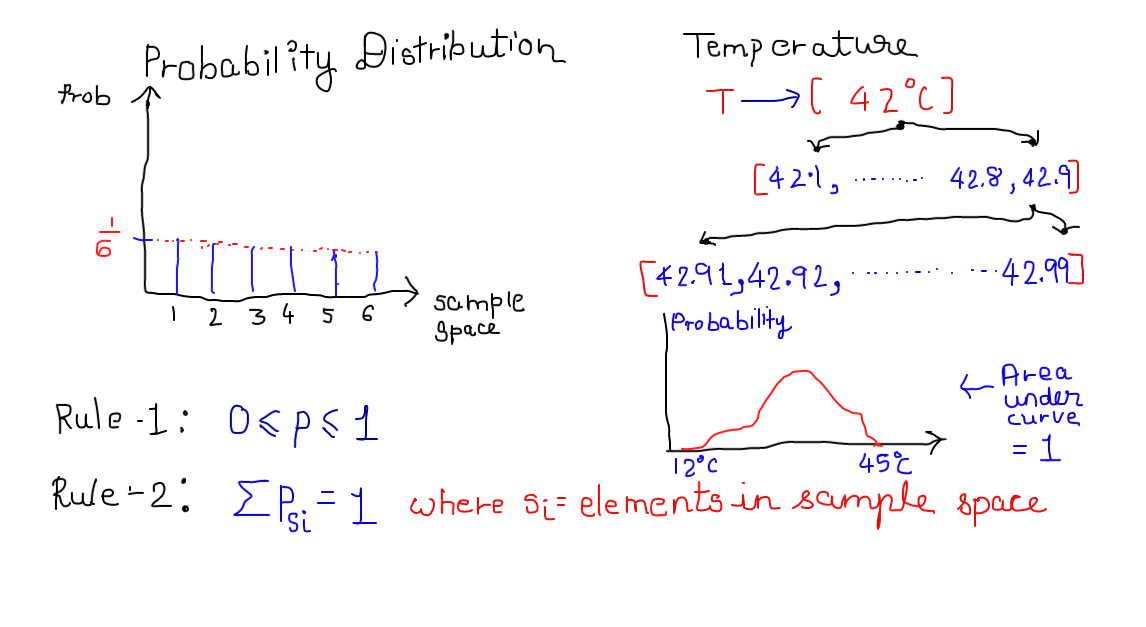 Probability Distribution
Prob
1/6
1 2 3 4 5 6
sample
space
Rule-1: 0 ≤ p ≤ 1
Rule-2: ∑P_si = 1 where si = elements in sample space
Temperature
T → [ 42°C ]
[42.1, ......... 42.8, 42.9]
[42.91, 42.92, ............ 42.99]
Probability
12°C 45°C
← Area
under
curve
= 1